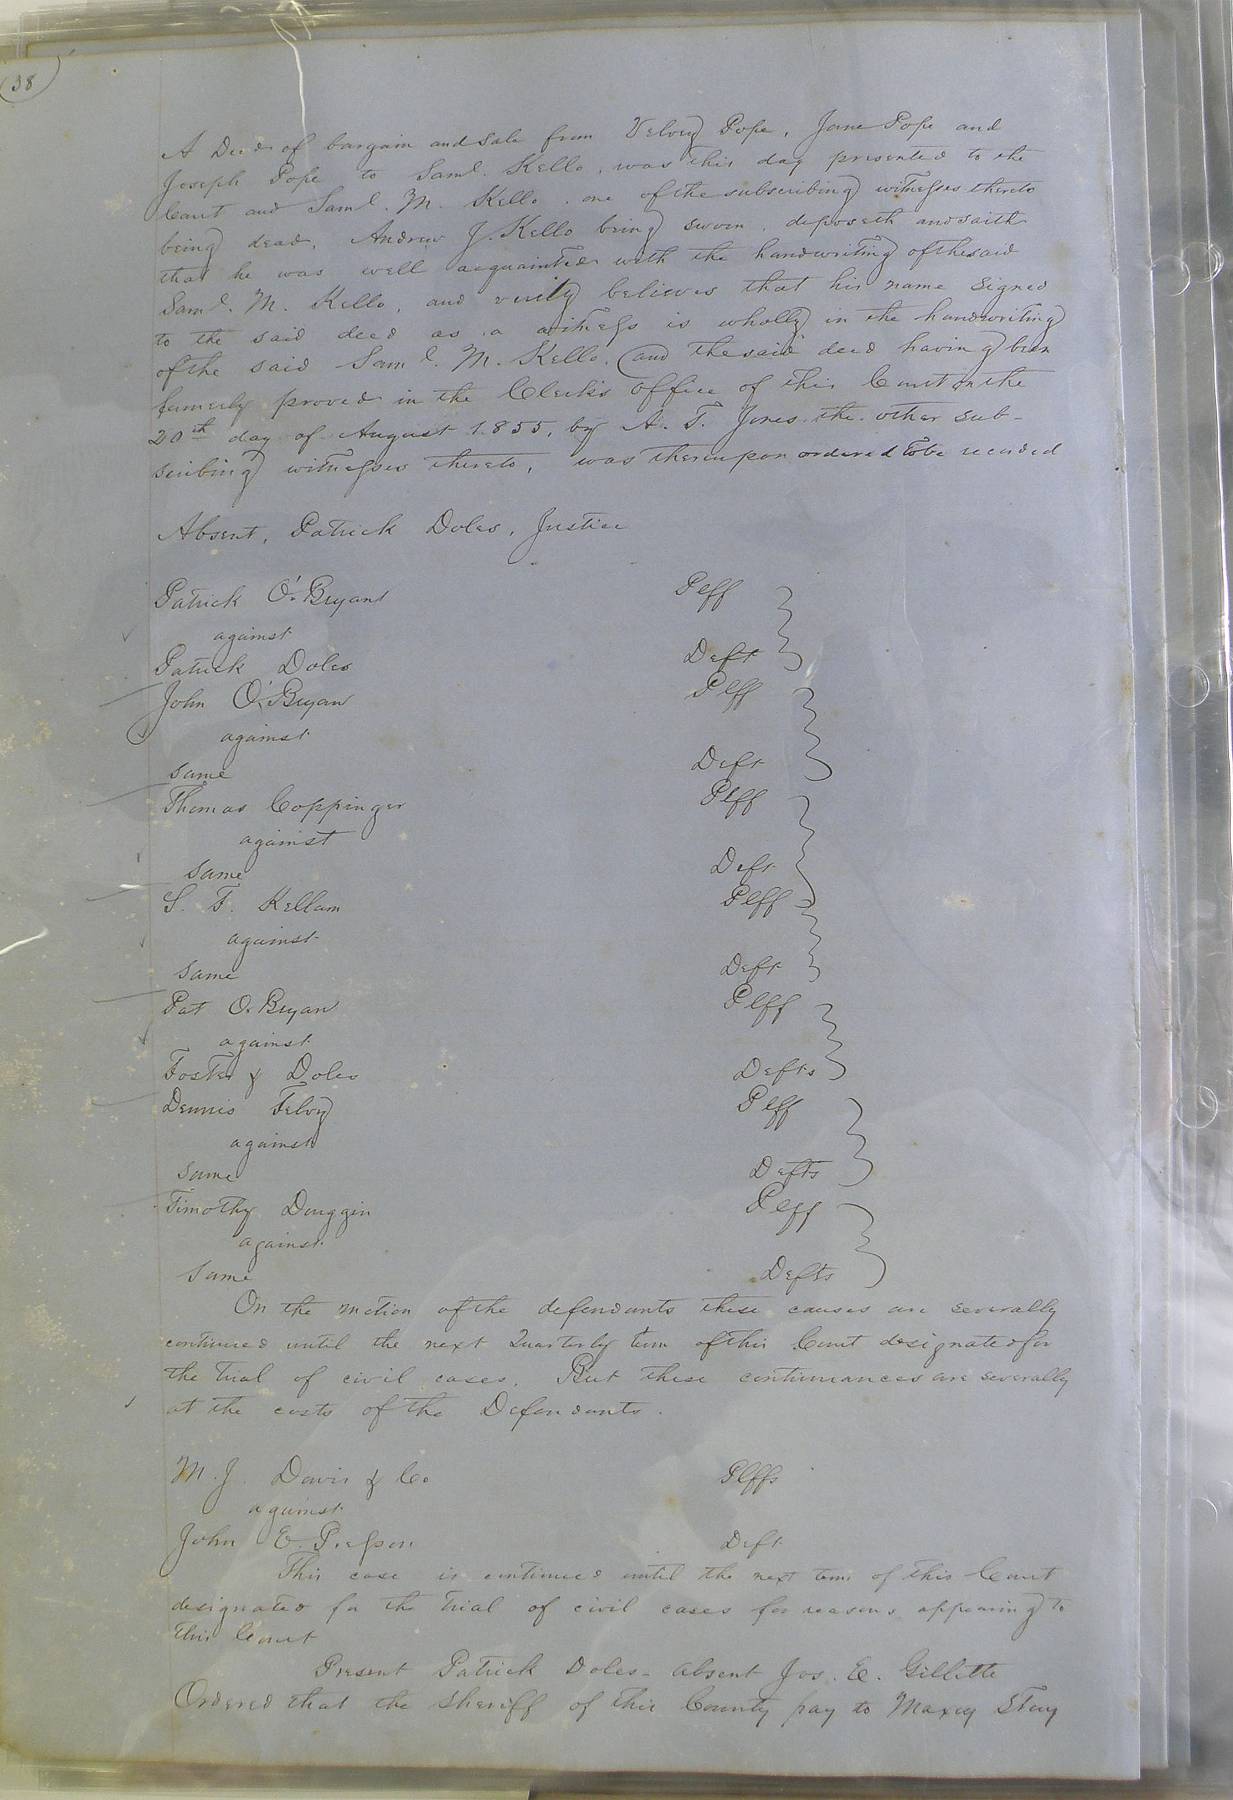 38
A Deed of bargain and sale from Velvey Pope, Jane Pope and
Joseph Pope to Saml. Kello, was this day presented to the
Court and Saml. M. Kello, one of the subscribing witnesses thereto
being dead, Andrew J. Kello being sworn, deposeth and saith
that he was well acquainted with the handwriting of the said
Saml. M. Kello, and verily believes that his name signed
to the said deed as a witness is wholly in the handwriting
of the said Saml. M. Kello. And the said deed having been
formerly proved in the Clerk's Office of this Court on the
20th day of August 1855, by A. T. Jones the other sub-
scribing witnesses thereto, was thereupon ordered to be recorded
Absent, Patrick Doles, Justice
Patrick O'Bryant Plff
against
Patrick Doles Deft
John O'Bryan Plff
against
same Deft
Thomas Coppinger Plff
against
same Deft
S. F. Kellam Plff
against
same Deft
Pat O.Bryan Plff
against
Foster & Doles Defts
Dennis Felvy Plff
against
same Defts
Timothy Douggin Plff
against
same Defts
On the motion of the defendants these causes are severally
continued until the next Quarterly term of this Court designated for
the trial of civil cases. But these continuances are severally
at the costs of the Defendants.
M. J. Davis & Co Plffs
against
John E. Deft
This case is continued until the next term of this Court
designated for the trial of civil cases for reasons appearing to
this Court
Present Patrick Doles - absent Jos. E. Gillette
Ordered that the Sheriff of this County pay to Maxcy